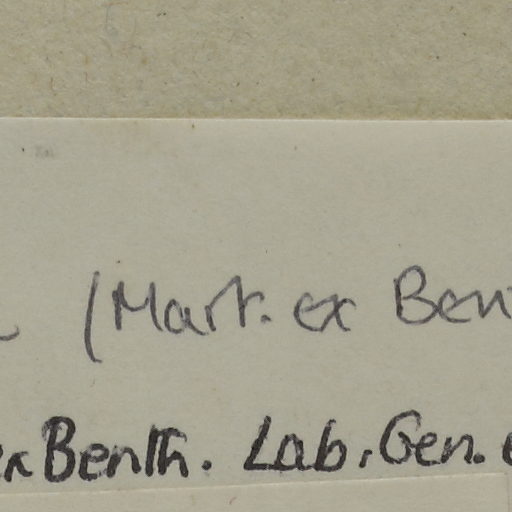 (Mart. ex Ben
ex Benth. Lab. Gen.